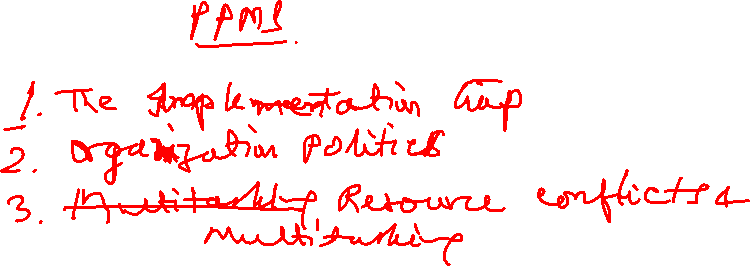 PPMS
1. The Implementation Gap
2. Organization Politics
3. Multitasking Resource conflicts &
Multitasking